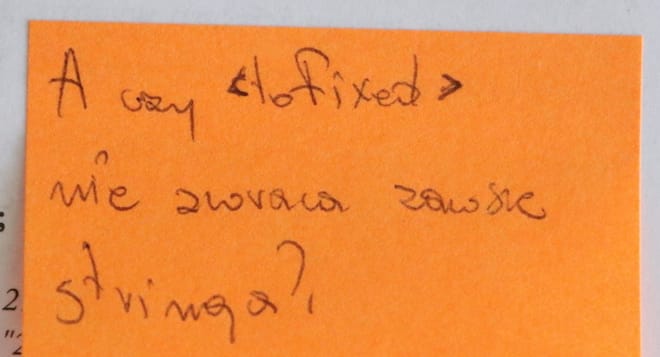 A czy <toFixed>
nie zwraca zawsze
stringa?
;
2
"2